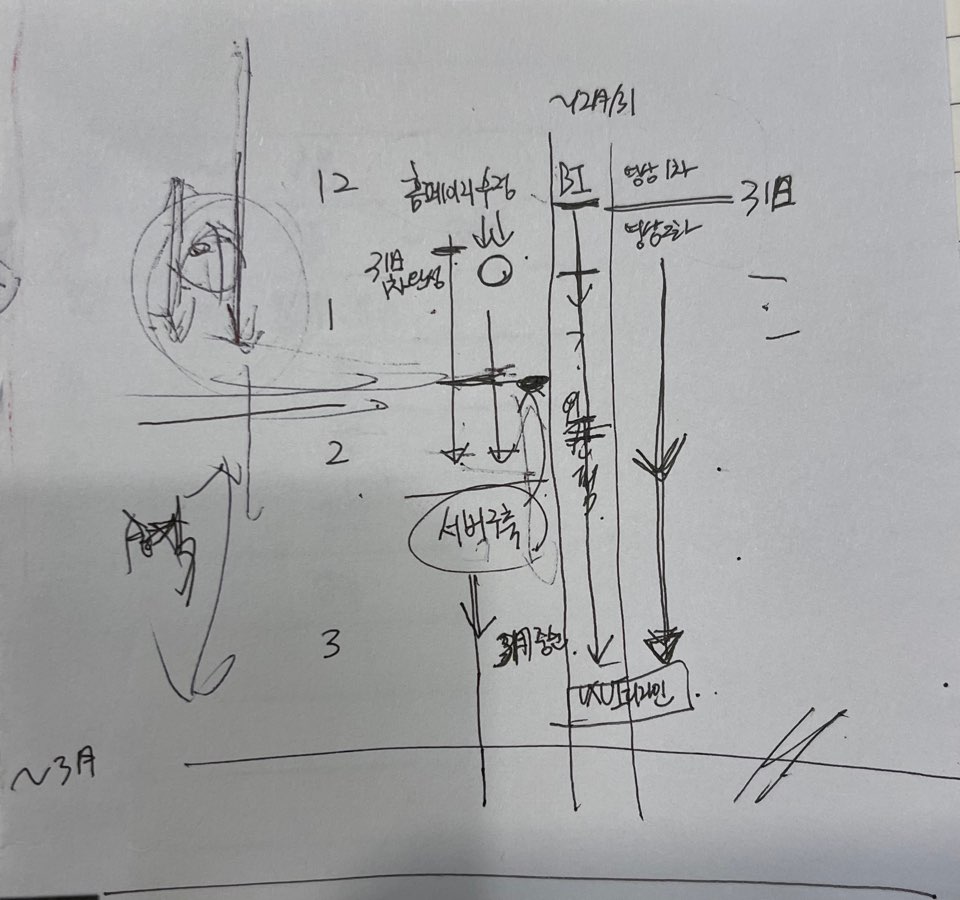 ~12月/31
12
홈페이지수정
BI
영상 1차
31日
영상2차
31日
1차완성
1
2
서버구축
3
3月중순
UXUI디자인
~3月